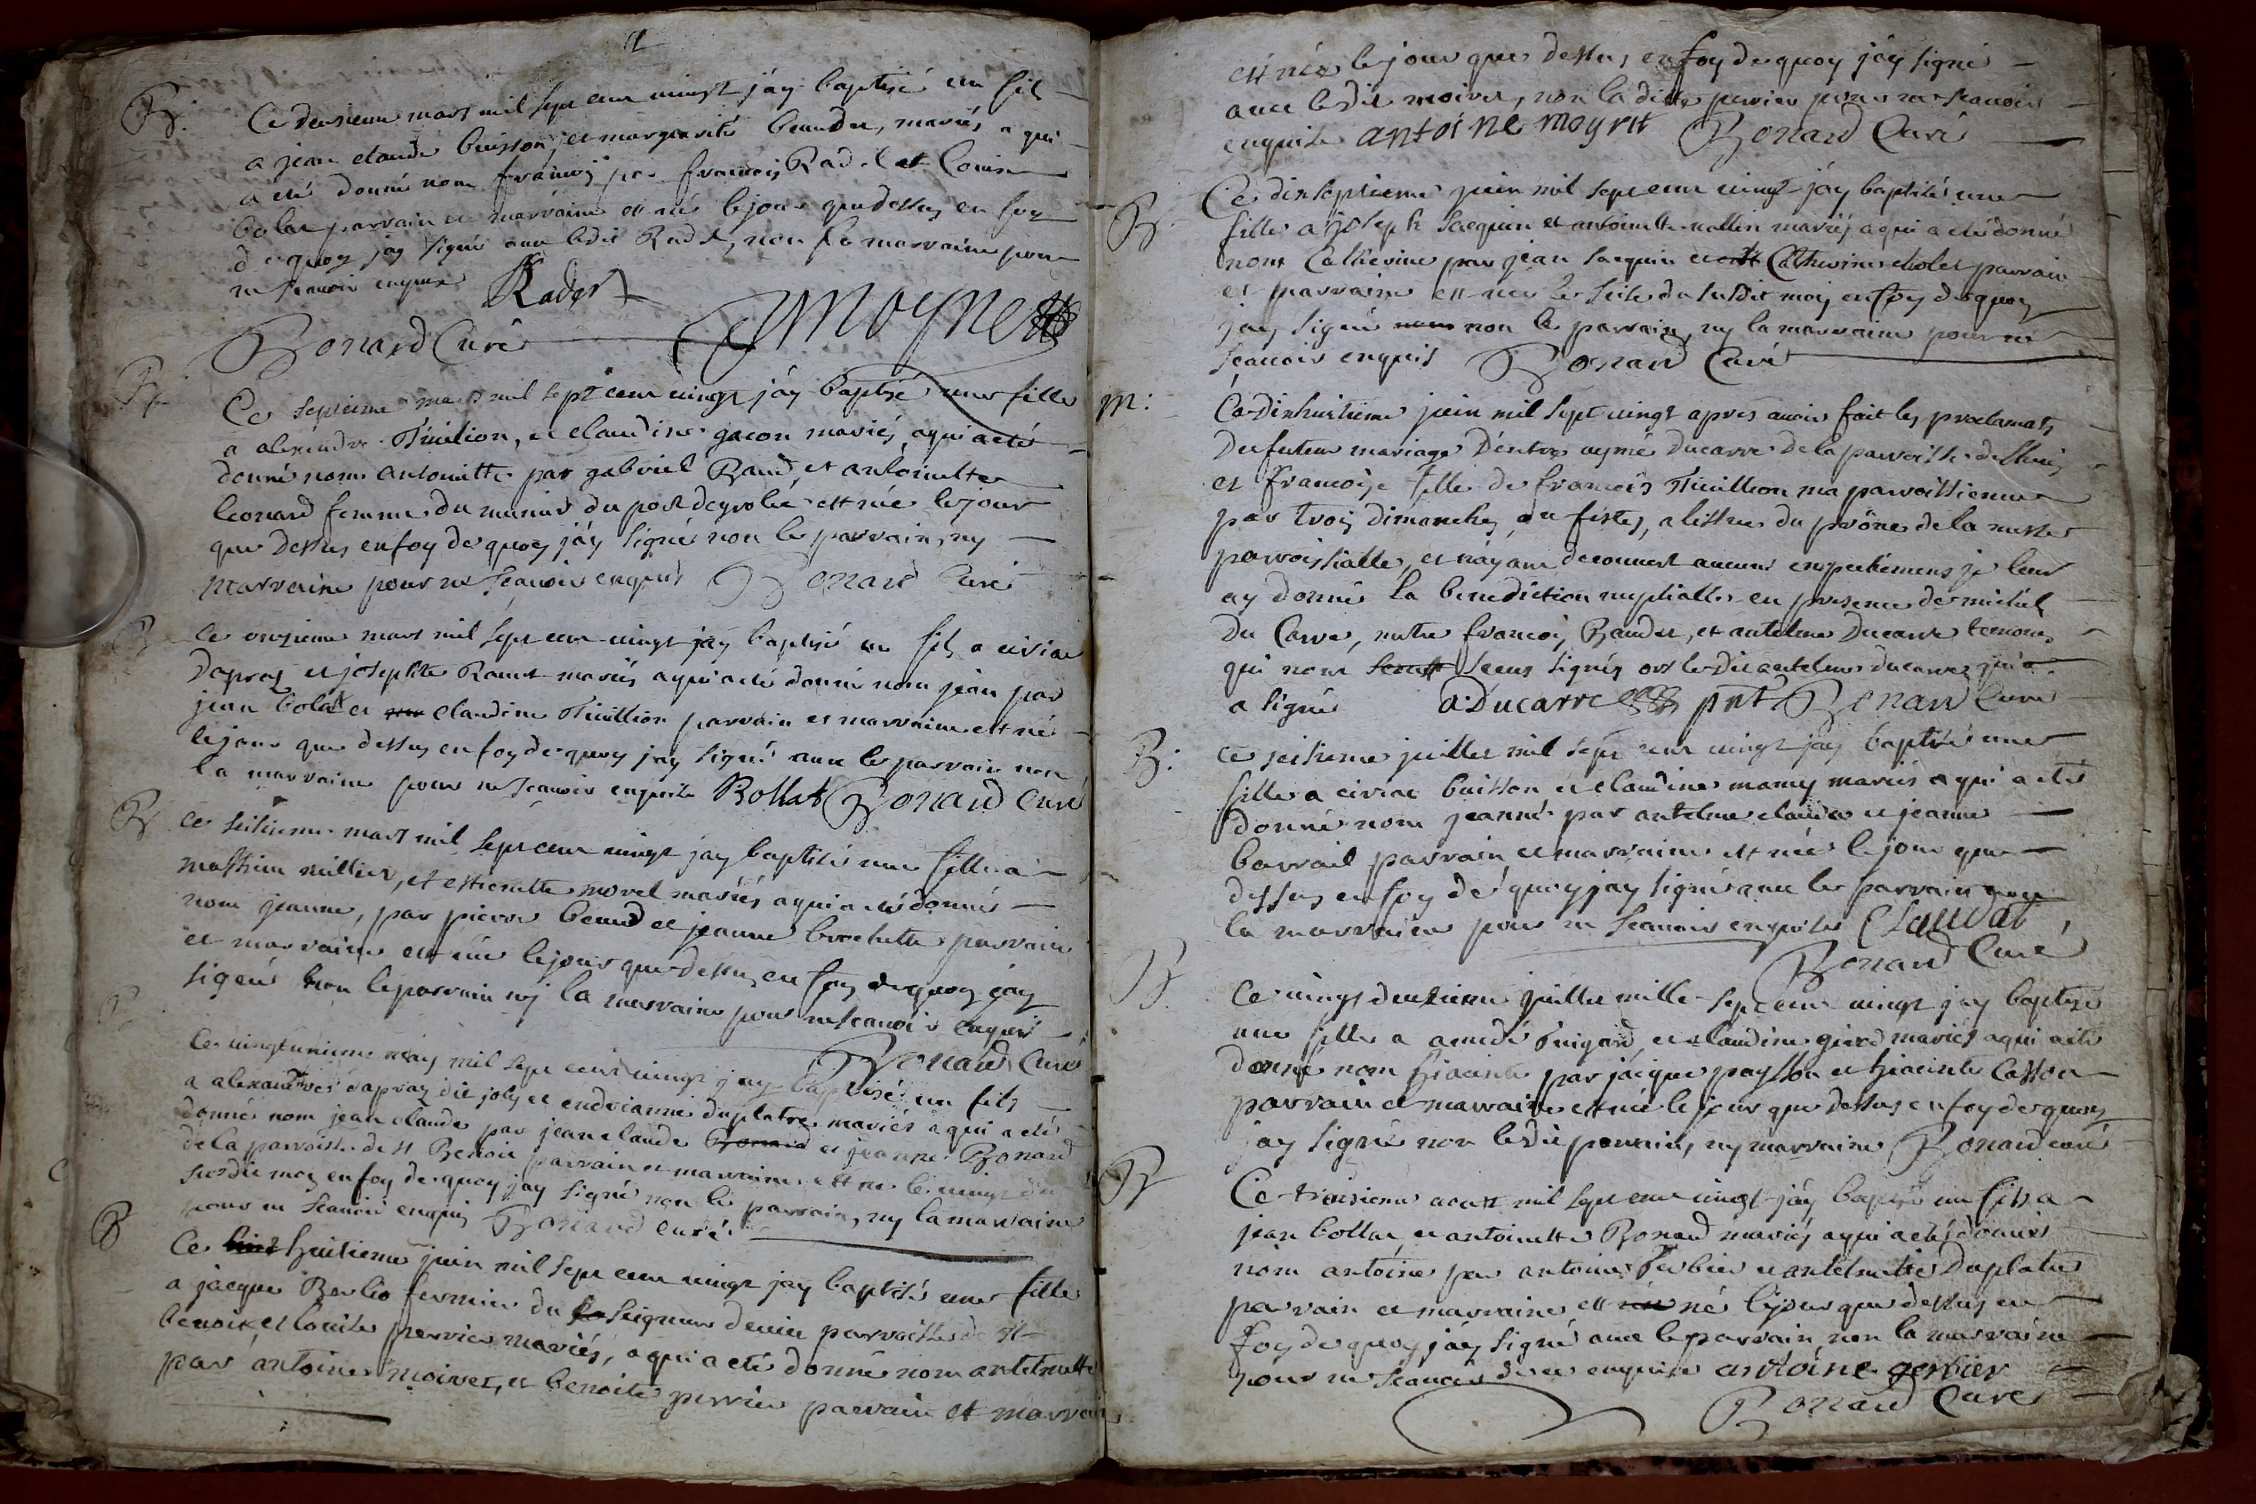 B. Ce deusieme mars mil sept cent vingt j'ay baptisé un fils
a jean claude buisson, et marguerite beaudet, mariés a qui
a eté donné nom francois par francois Radet et Louise
bolat parrain et marraine est né le jour que dessus en foy
de quoy jay signé avec ledit Radet, non la marraine pour
ne scavoir enquise Radet
Bonard Curé
B. Ce septieme mars mil sept cent vingt j'ay baptisé une fille
a alexandre Tuillion, et claudine gacon mariés, a qui a eté
donné nom antoinette par gabriel Baud, et antoinette
leonard femme du munier du est née le jour
que dessus en foy de quoy j'ay signé non le parrain, ny
marraine pour ne scavoir enquis Bonard Curé
B Ce onzieme mars mil sept cent vingt jay baptisé un fils a
Dapraz et josephte mariés a qui a eté donné nom jean par
jean bolat et claudine Tuillion parrain et marraine est né
le jour que dessus en foy de quoy jay signé avec le parrain non
la marraine pour ne scavoir enquise Bollat Bonard Curé
B. Ce seisieme mars mil sept cent vingt jay baptisé une fille a
mathieu millier, et estiennette morel mariés a qui a eté donné
nom jeanne, par pierre beaud et jeanne brochette parrain
et marraine est née le jour que dessus en foy de quoy jay
signé non le parrain ny la marraine pour ne scavoir enquis
Bonard Curé
Ce vingtunieme may mil sept cent vingt jay baptisé un fils
a alexandre dapraz dit joly et andrianne duplatre mariés a qui a eté
donné nom jean claude par jean claude Bonard et jeanne Bonard
de la parroisse de st Benoit parrain et marraine est né le vingt du
susdit moy en foy de quoy jay signé non le parrain, ny la marraine
pour ne scavoir enquis Bonard curé
B Ce huitieme juin mil sept cent vingt jay baptisé une fille
a jacque Berlio fermier du seigneur parroisse de st
benoit, et louise perrier mariés, a qui a eté donné nom antelmette
par antoine moiret, et benoite perrier parrain et marraine
est née le jour que dessus en foy de quoy j'ay signé
avec ledit moiret, non la ditte perrier pour ne scavoir
enquise antoine moyret Bonard Curé
B Ce dixseptieme juin mil sept cent vingt j'ay baptisé une
fille a joseph Jacquin et antoinette mallin mariés a qui a eté donné
nom Catherine par jean Jacquin et Catherine cholet parrain
et marraine est née le seise du susdit moy en foy de quoy
jay signé non le parrain, ny la marraine pour ne
scavoir enquis Bonard Curé
m: Ce dixhuitieme juin mil sept vingt apres avoir fait les proclamats
du futeur mariage d'entre aymé Ducarre de la parroisse
et francoise fille de francois Tuillion ma parroissienne
par trois dimanches, ou festes, a l'issue du prône de la messe
parroissialle, et n'ayant decouvert aucuns enpechemens je leur
ay donné la benediction nuptialle en presence de michel
Du Carre, mitre francois Baudet, et antelme Ducarre temoins
qui nont sceus signés ledit antelme ducarre qui
a signé a.Ducarre pnt Bonard Curé
B: Ce seisieme juillet mil sept cent vingt jay baptisé une
fille a civiac buisson et claudine mamy mariés a qui a eté
donné nom jeanne par antelme claudat et jeanne
barrail parrain et marraine est née le jour que
dessus en foy de quoy jay signé avec le parrain non
la marraine pour ne scavoir enquise Claudat
Bonard Curé
B. Ce vingt deusieme juillet mille sept cent vingt jay baptisé
une fille a amedé Guigard, et claudine girod mariés a qui a eté
donné nom hiacinte par jacque paysson et hiacinte Casson
parrain et marraine est née le jour que dessus en foy de quoy
jay signé non ledit parrain, ny marraine Bonard curé
B Ce troisieme aoust mil sept cent vingt j'ay baptisé un fils a
jean bollat et antoinette Bonard mariés a qui a eté donné
nom antoine par antoine Gerbier et antelmette Duplatre
parrain et marraine est né le jour que dessus en
foy de quoy j'ay signé avec le parrain, non la marraine
pour ne scavoir de ce enquise antoine gerbier
Bonard Curé